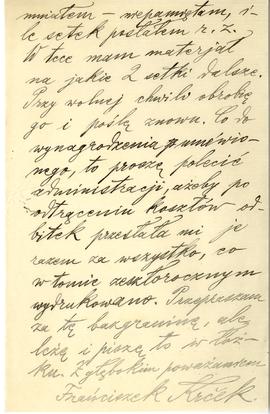 mniałem – niepamiętam, i-
le setek posłałem r. z.
W tece mam materjał
na jakie 2 setki dalsze.
Przy wolnej chwili obrobię
go i poślę znowu. Co do
wynagrodzenia umówio-
nego, to proszę polecić
administracji, ażeby po
odtrąceniu kosztów od-
bitek przesłała mi je
razem za wszystko, co
w tomie zeszłorocznym
wydrukowano. Przepraszam
za tę bazgraninę, ale
leżę i piszę to w łóż-
ku. Z głębokim poważaniem
Franciszek Krček.